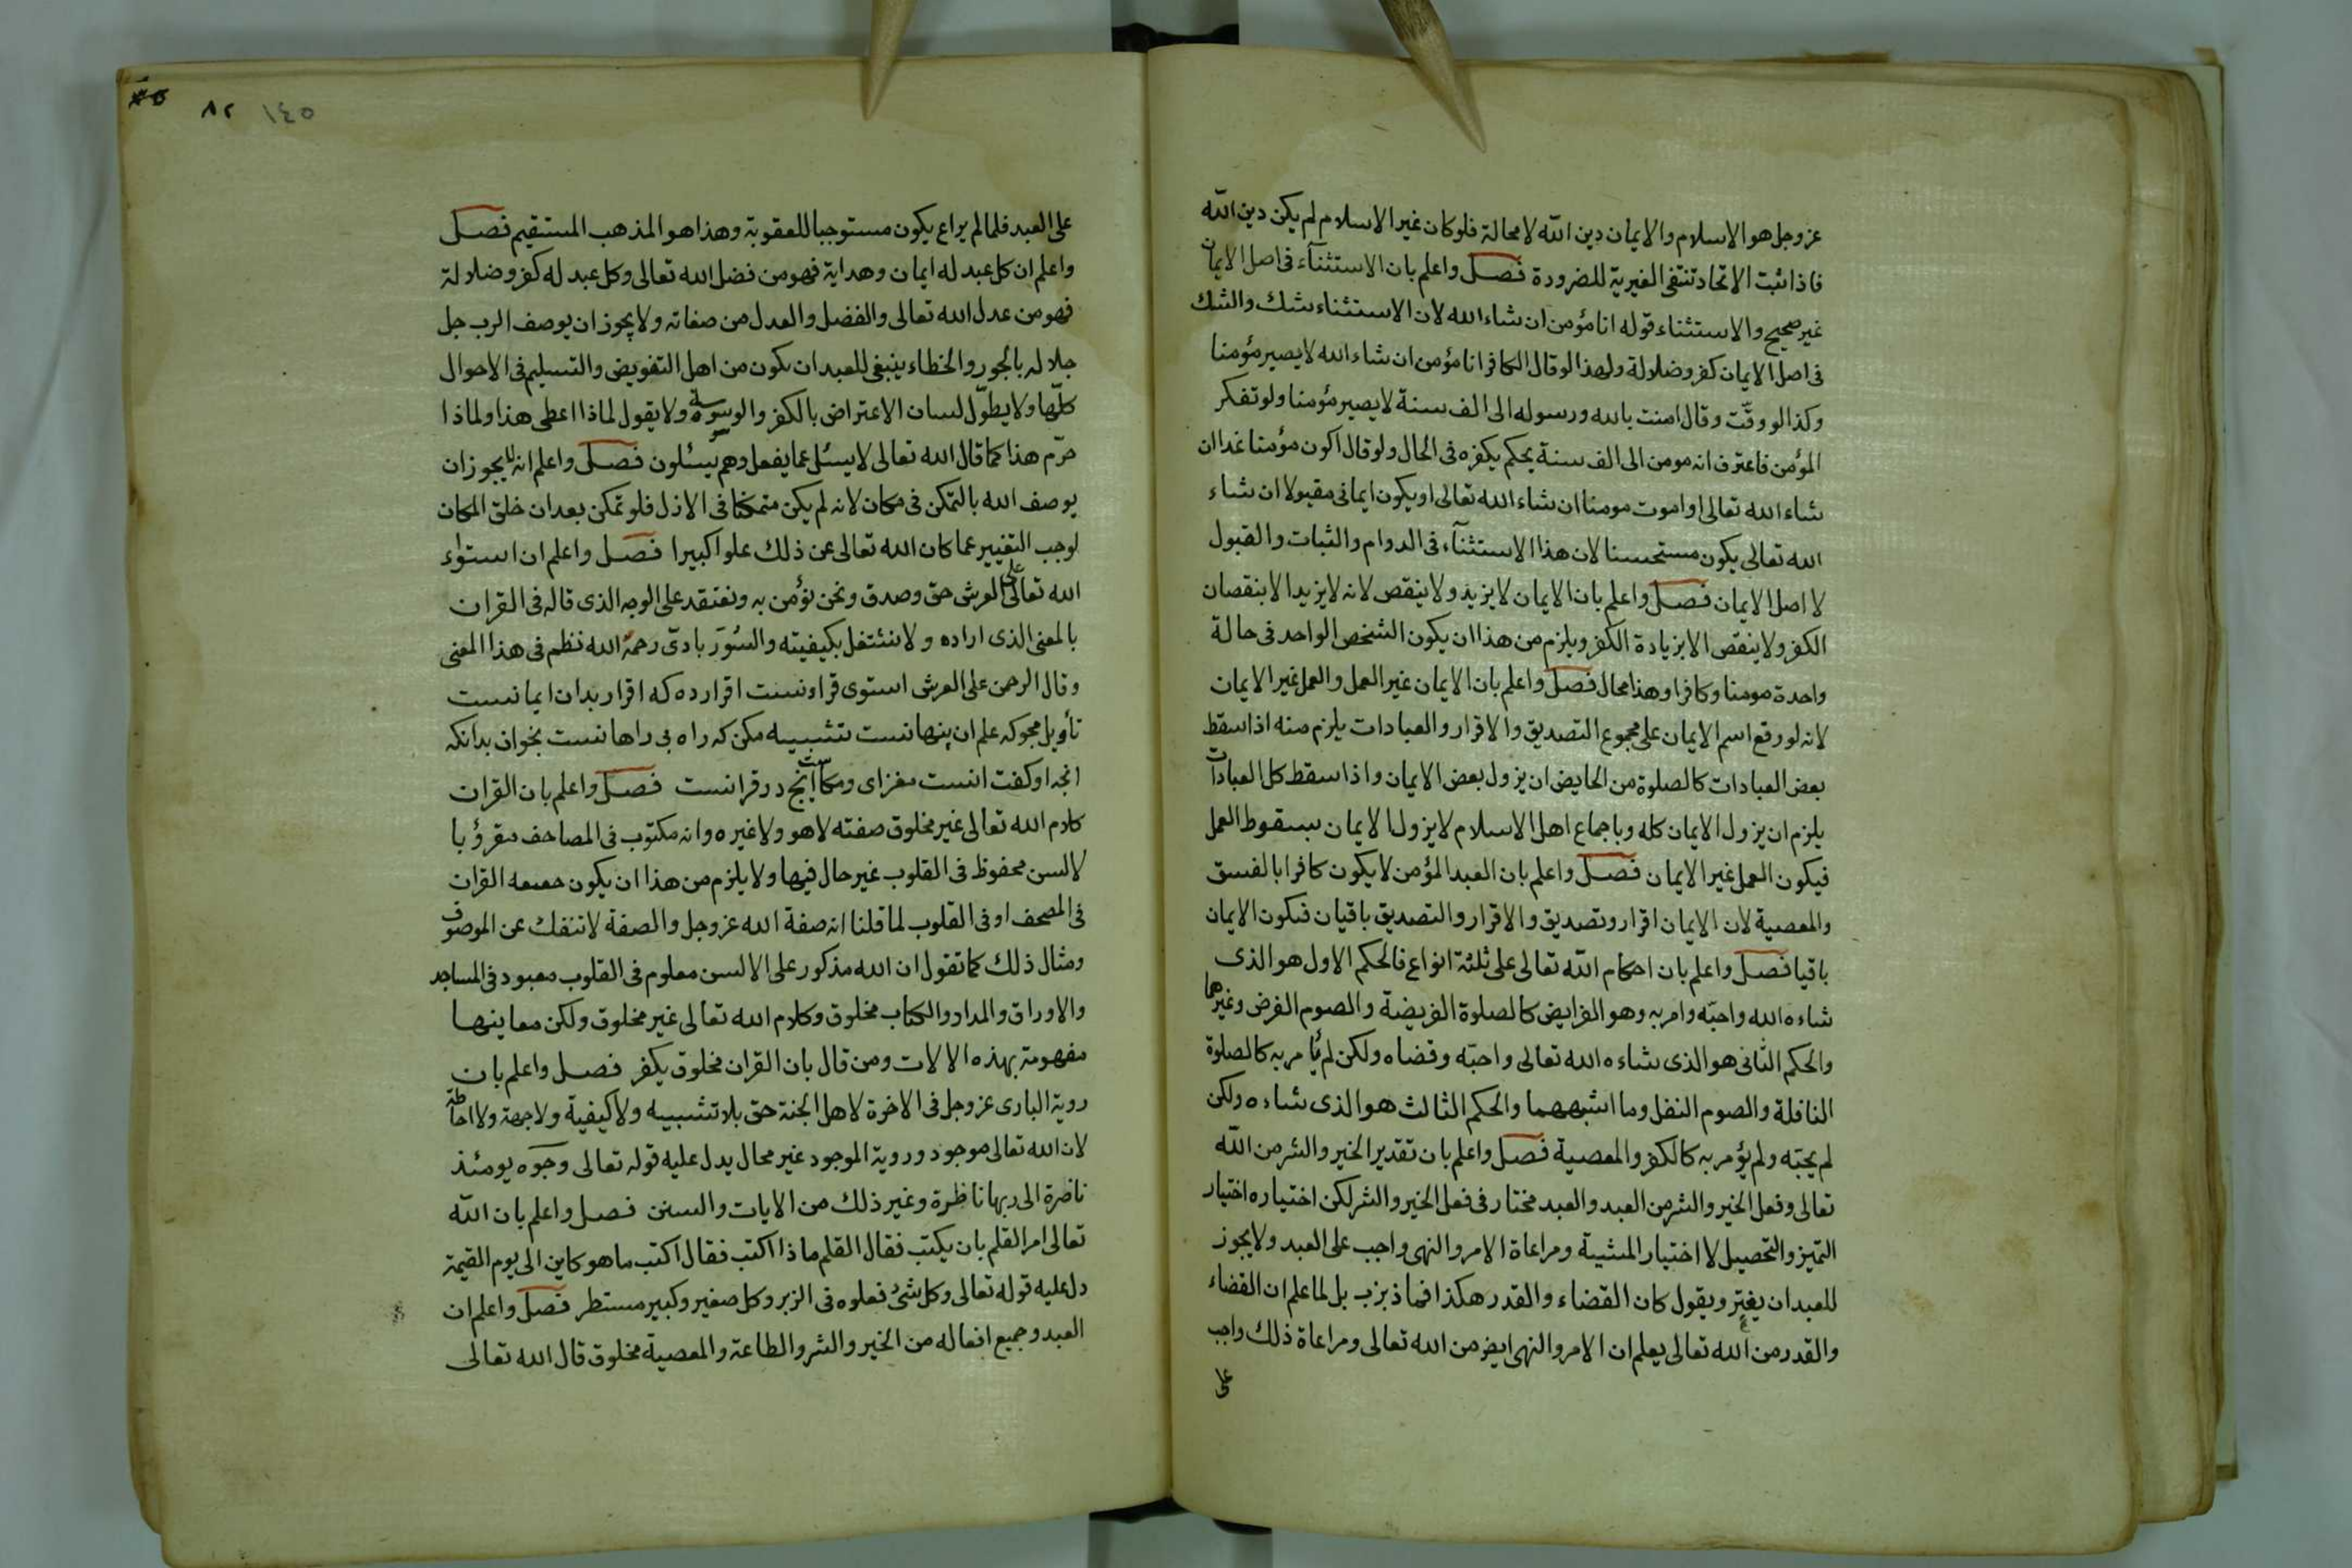 عز وجل هو الاسلام والايمان دين الله لا محالة فلو كان غير الاسلام لم يكن دين الله
فاذا ثبت الاتحاد تنتفى الغيرية للضرورة فصل واعلم بان الاستثنآء فى اصل الايمان
غير صحيح والاستثناء قوله انا مؤمن ان شاء الله لان الاستثناء شك والشك
فى اصل الايمان كفر وضلالة ولهذا لو قال الكافر انا مؤمن ان شاء الله لا يصير مؤمنا
وكذا لو وقّت وقال امنت بالله ورسوله الى الف سنة لا يصير مؤمنا ولو تفكر
المؤمن فاعترف انه مومن الى الف سنة يحكم بكفره فى الحال ولو قال اكون مؤمنا غدا ان
شاء الله تعالى او اموت مومنا ان شاء الله تعالى او يكون ايمانى مقبولا ان شاء
الله تعالى يكون مستحسنا لان هذا الاستثنآء فى الدوام والثبات والقبول
لا اصل الايمان فصل واعلم بان الايمان لا يزيد ولا ينقص لانه لا يزيد الا بنقصان
الكفر ولا ينقص الا بزيادة الكفر ويلزم من هذا ان يكون الشخص الواحد فى حالة
واحدة مومنا وكافرا وهذا محال فصل واعلم بان الايمان غير العمل والعمل غير الايمان
لانه لو رقع اسم الايمان على مجموع التصديق والاقرار والعبادات يلزم منه اذا سقط
بعض العبادات كالصلوة من الحايض ان يزول بعض الايمان واذا سقط كل العبادات
يلزم ان يزول الايمان كله وباجماع اهل الاسلام لا يزول الايمان بسقوط العمل
فيكون العمل غير الايمان فصل واعلم بان العبد المؤمن لا يكون كافرا بالفسق
والمعصية لان الايمان اقرار وتصديق والاقرار والتصديق باقيان فيكون الايمان
باقيا فصل واعلم بان احكام الله تعالى على ثلثة انواع فالحكم الاول هو الذى
شاءه الله واحبّه وامر به وهو الفرايض كالصلوة الفريضة والصوم الفرض وغيرهما
والحكم الثانى هو الذى شاءه الله تعالى واحبّه وقضاه ولكن لم يأمر به كالصلوة
النافلة والصوم النفل وما اشبههما والحكم الثالث هو الذى شاءه ولكن
لم يحبّه ولم يؤمر به كالكفر والمعصية فصل واعلم بان تقدير الخير والشر من الله
تعالى وفعل الخير والشر من العبد والعبد مختار فى فعل الخير والشر لكن اختياره اختيار
التميز والتحصيل لا اختيار المشية ومراعاة الامر والنهى واجب على العبد ولا يجوز
للعبد ان يغتر ويقول كان القضاء والقدر هكذا فما ذ بل لما علم ان القضاء
والقدر من الله تعالى يعلم ان الامر والنهى ايض من الله تعالى ومراعاة ذلك واجب
على
١٤٥ ٨٢
على العبد فلما لم يراع يكون مستوجبا للعقوبة وهذا هو المذهب المستقيم فصل
واعلم ان كل عبد له ايمان وهداية فهو من فضل الله تعالى وكل عبد له كفر وضلالة
فهو من عدل الله تعالى والفضل والعدل من صفاته ولا يجوز ان يوصف الرب جل
جلاله بالجور والخطاء ينبغى للعبد ان يكون من اهل التفويض والتسليم فى الاحوال
كلّها ولا يطوّل لسان الاعتراض بالكفر والوسوسة ولا يقول لماذا اعطى هذا ولماذا
حرّم هذا كما قال الله تعالى لا يسئل عما يفعل وهم يسئلون فصل واعلم انه لا يجوز ان
يوصف الله بالتمكن فى مكان لانه لم يكن متمكنا فى الازل فلو تمكن بعد ان خلق المكان
لوجب التغيير عما كان الله تعالى عن ذلك علوا كبيرا فصل واعلم ان استواء
الله تعالى على العرش حق وصدق ونحن نؤمن به ونعتقد على الوجه الذى قاله فى القران
بالمعنى الذى اراده ولا نشتغل بكيفيته والسور بادى رحمه الله نظم فى هذا المعنى
وقال الرحمن على العرش استوى قرانست اقرار ده كه اقرار بدان ايمانست
تأويل مجوكه علم ان پنهانست تشبيه مكن كه راه بى راهانست بخوان بدانكه
انچه او كفت انست مفزاى ومكاست انچ در قرانست فصل واعلم بان القران
كلام الله تعالى غير مخلوق صفته لا هو ولا غيره وانه مكتوب فى المصاحف مقرؤ با
لالسن محفوظ فى القلوب غير حال فيها ولا يلزم من هذا ان يكون حقيقة القران
فى المصحف او فى القلوب لما قلنا انه صفة الله عز وجل والصفة لا تنفك عن الموصوف
ومثال ذلك كما تقول ان الله مذكور على الالسن معلوم فى القلوب معبود فى المساجد
والاوراق والمداد والكتاب مخلوق وكلام الله تعالى غير مخلوق ولكن معاينها
مفهومة بهذه الالات ومن قال بان القران مخلوق يكفر فصل واعلم بان
روية البارى عز وجل فى الاخرة لاهل الجنة حق بلا تشبيه ولا كيفية ولا جهة ولا احاطة
لان الله تعالى موجود وروية الموجود غير محال يدل عليه قوله تعالى وجوه يومئذ
ناضرة الى ربها ناظرة وغير ذلك من الايات والسنن فصل واعلم بان الله
تعالى امر القلم بان يكتب فقال القلم ماذا اكتب فقال اكتب ما هو كاين الى يوم القيمة
دل عليه قوله تعالى وكل شئ فعلوه فى الزبر وكل صغير وكبير مستطر فصل واعلم ان
العبد وجميع افعاله من الخير والشر والطاعة والمعصية مخلوق قال الله تعالى